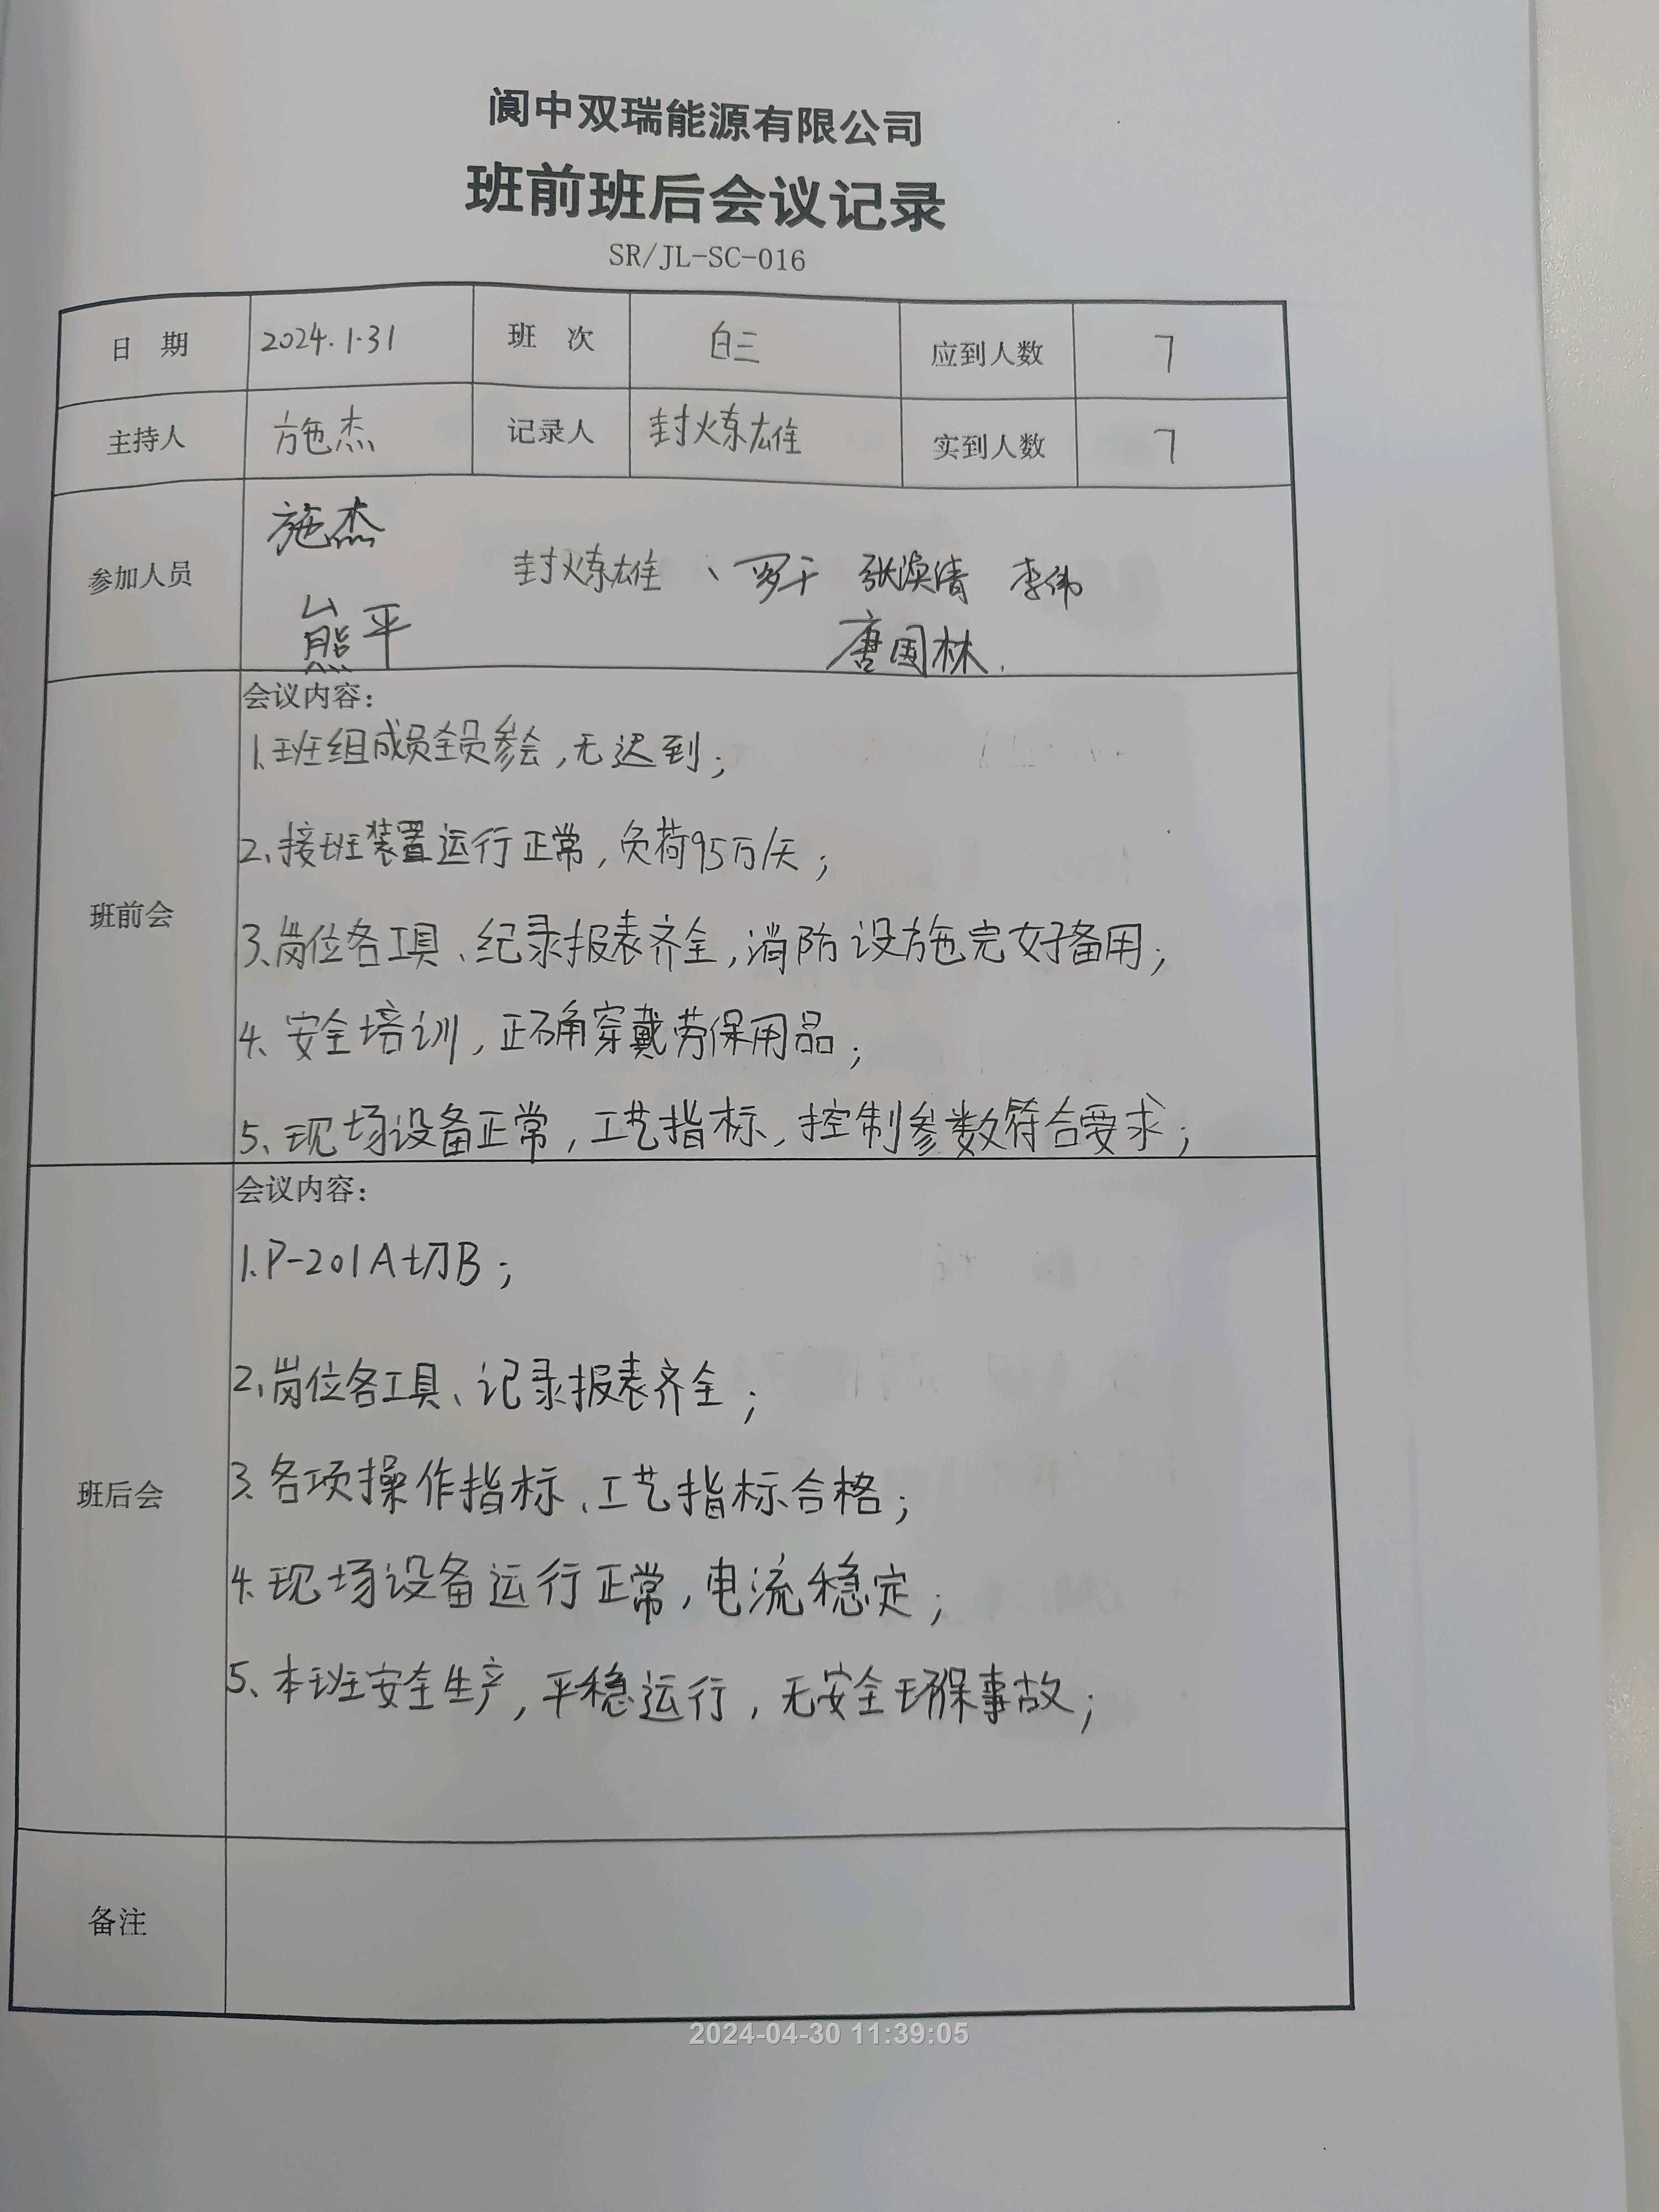 阆中双瑞能源有限公司
班前班后会议记录
SR/JL-SC-016
日 期 2024.1.31 班 次 白三 应到人数 7
主持人 施杰 记录人 封炼雄 实到人数 7
参加人员
施杰
封炼雄、罗干 张涣清 李伟
熊平 唐国林.
班前会
会议内容：
1.班组成员全员参会,无迟到;
2、接班装置运行正常,负荷95万/天;
3、岗位各工具、纪录报表齐全,消防设施完好备用;
4、安全培训,正确穿戴劳保用品;
5、现场设备正常,工艺指标,控制参数符合要求;
班后会
会议内容：
1.P-201A切B;
2、岗位各工具、记录报表齐全;
3、各项操作指标、工艺指标合格;
4.现场设备运行正常,电流稳定;
5、本班安全生产,平稳运行,无安全环保事故;
备注
2024-04-30 11:39:05